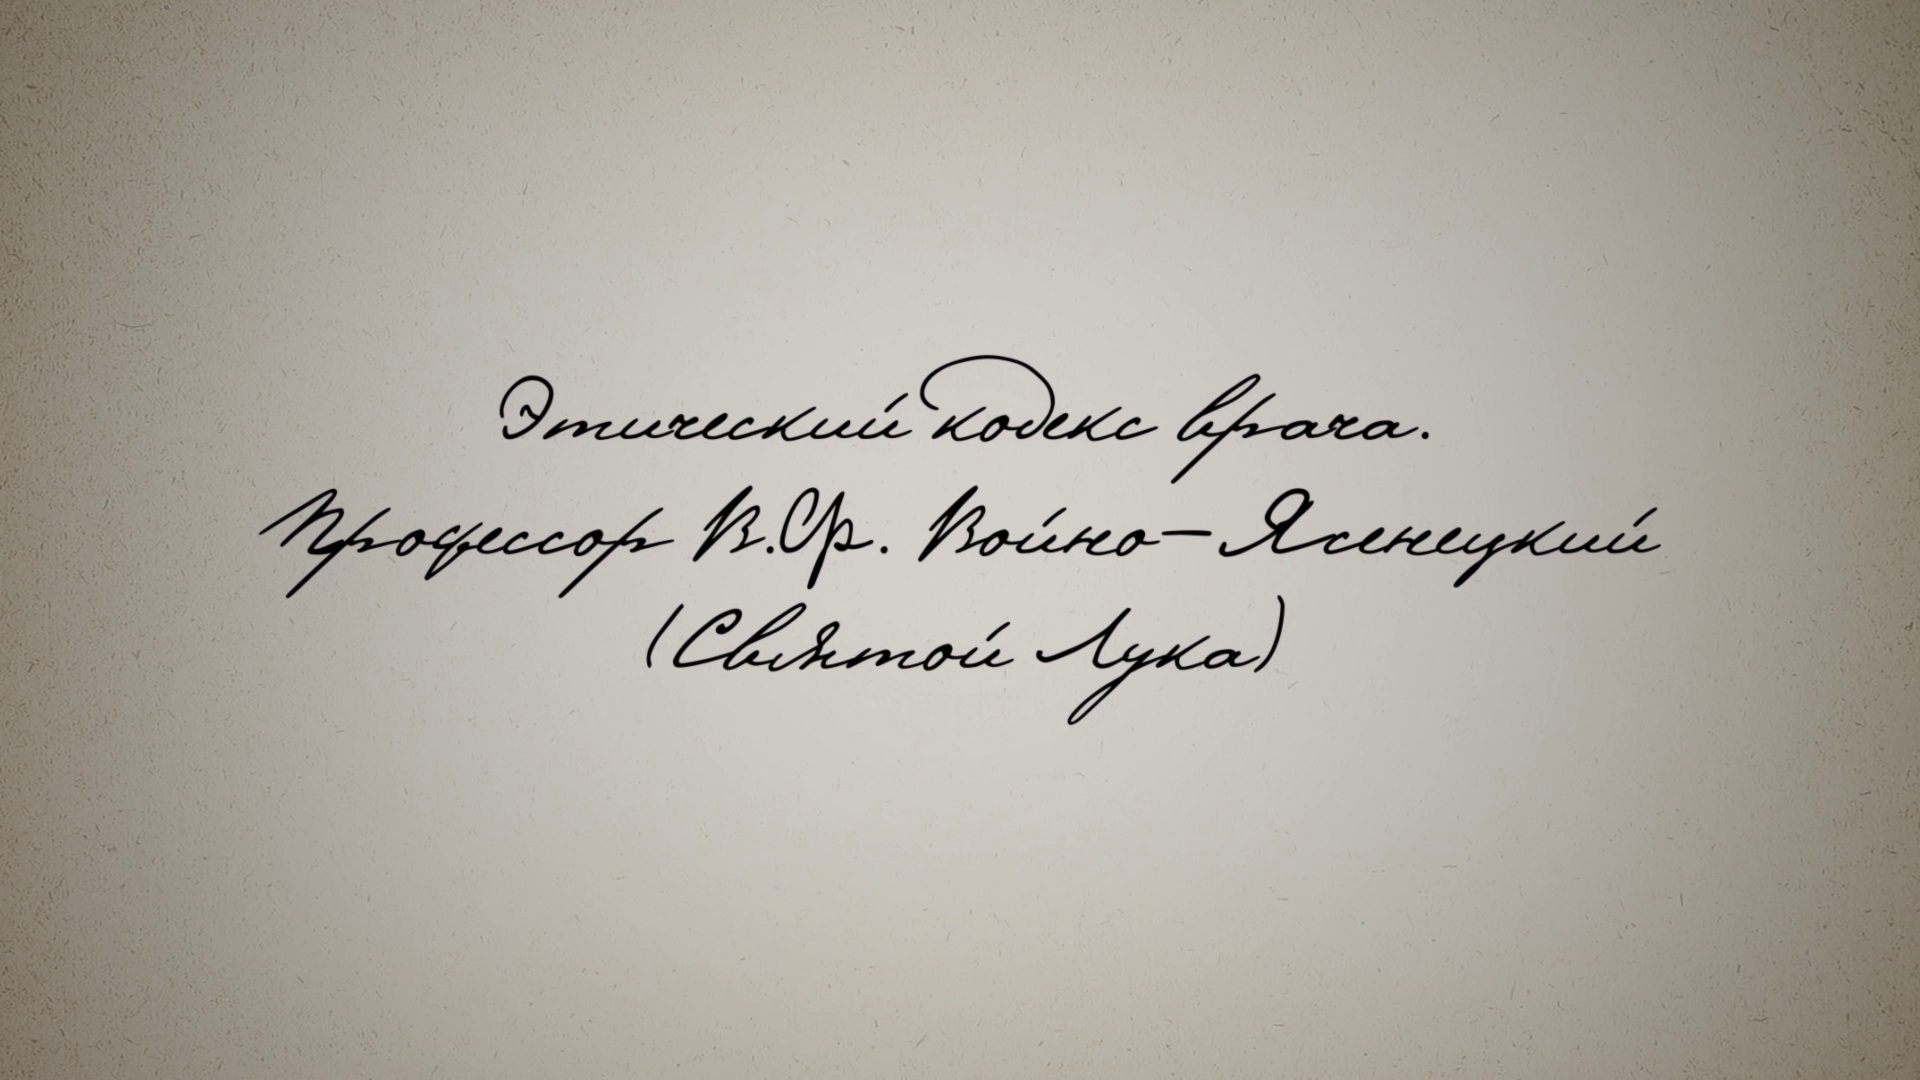 Этический кодекс врача.
Профессор В.Ф. Войно-Ясенецкий
(Святой Лука)